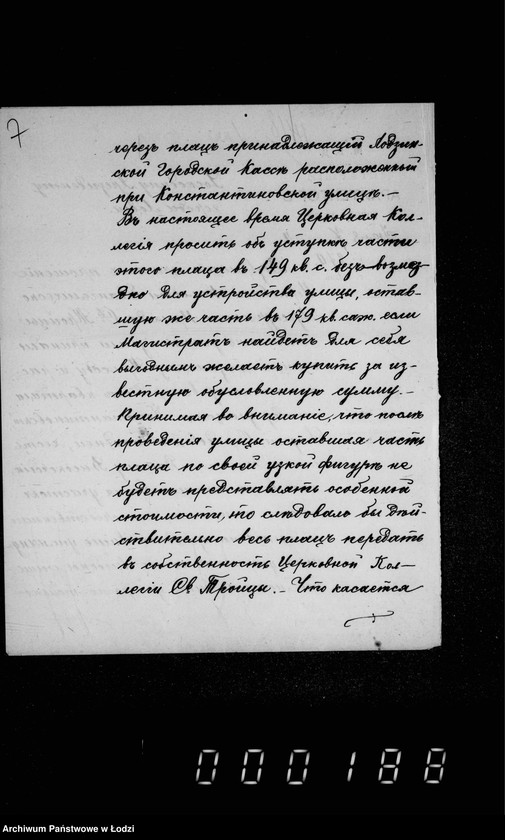 7
черезъ плацъ принадлежащій Лодзин-
ской Городской Кассѣ расположенный
при Константиновской улицѣ.—
Въ настоящее время Церковная Кол-
легія проситъ объ уступкѣ части
этого плаца въ 149 кв. с. безъ возмез
дно для устройства улицы, остав-
шую же часть въ 179 кв. саж. если
Магистратъ найдетъ для себя
выгоднымъ желаетъ купить за из-
вестную обусловленную сумму.—
Принимая во вниманіе, что послѣ
проведенія улицы оставшая часть
плаца по своей узкой фигурѣ не
будетъ представлять особенной
стоимости, то слѣдовало бы дѣй-
ствительно весь плацъ передать
въ собственность Церковной Кол-
легіи Св. Тройцы.— Что касается
000188
Archiwum Państwowe w Łodzi